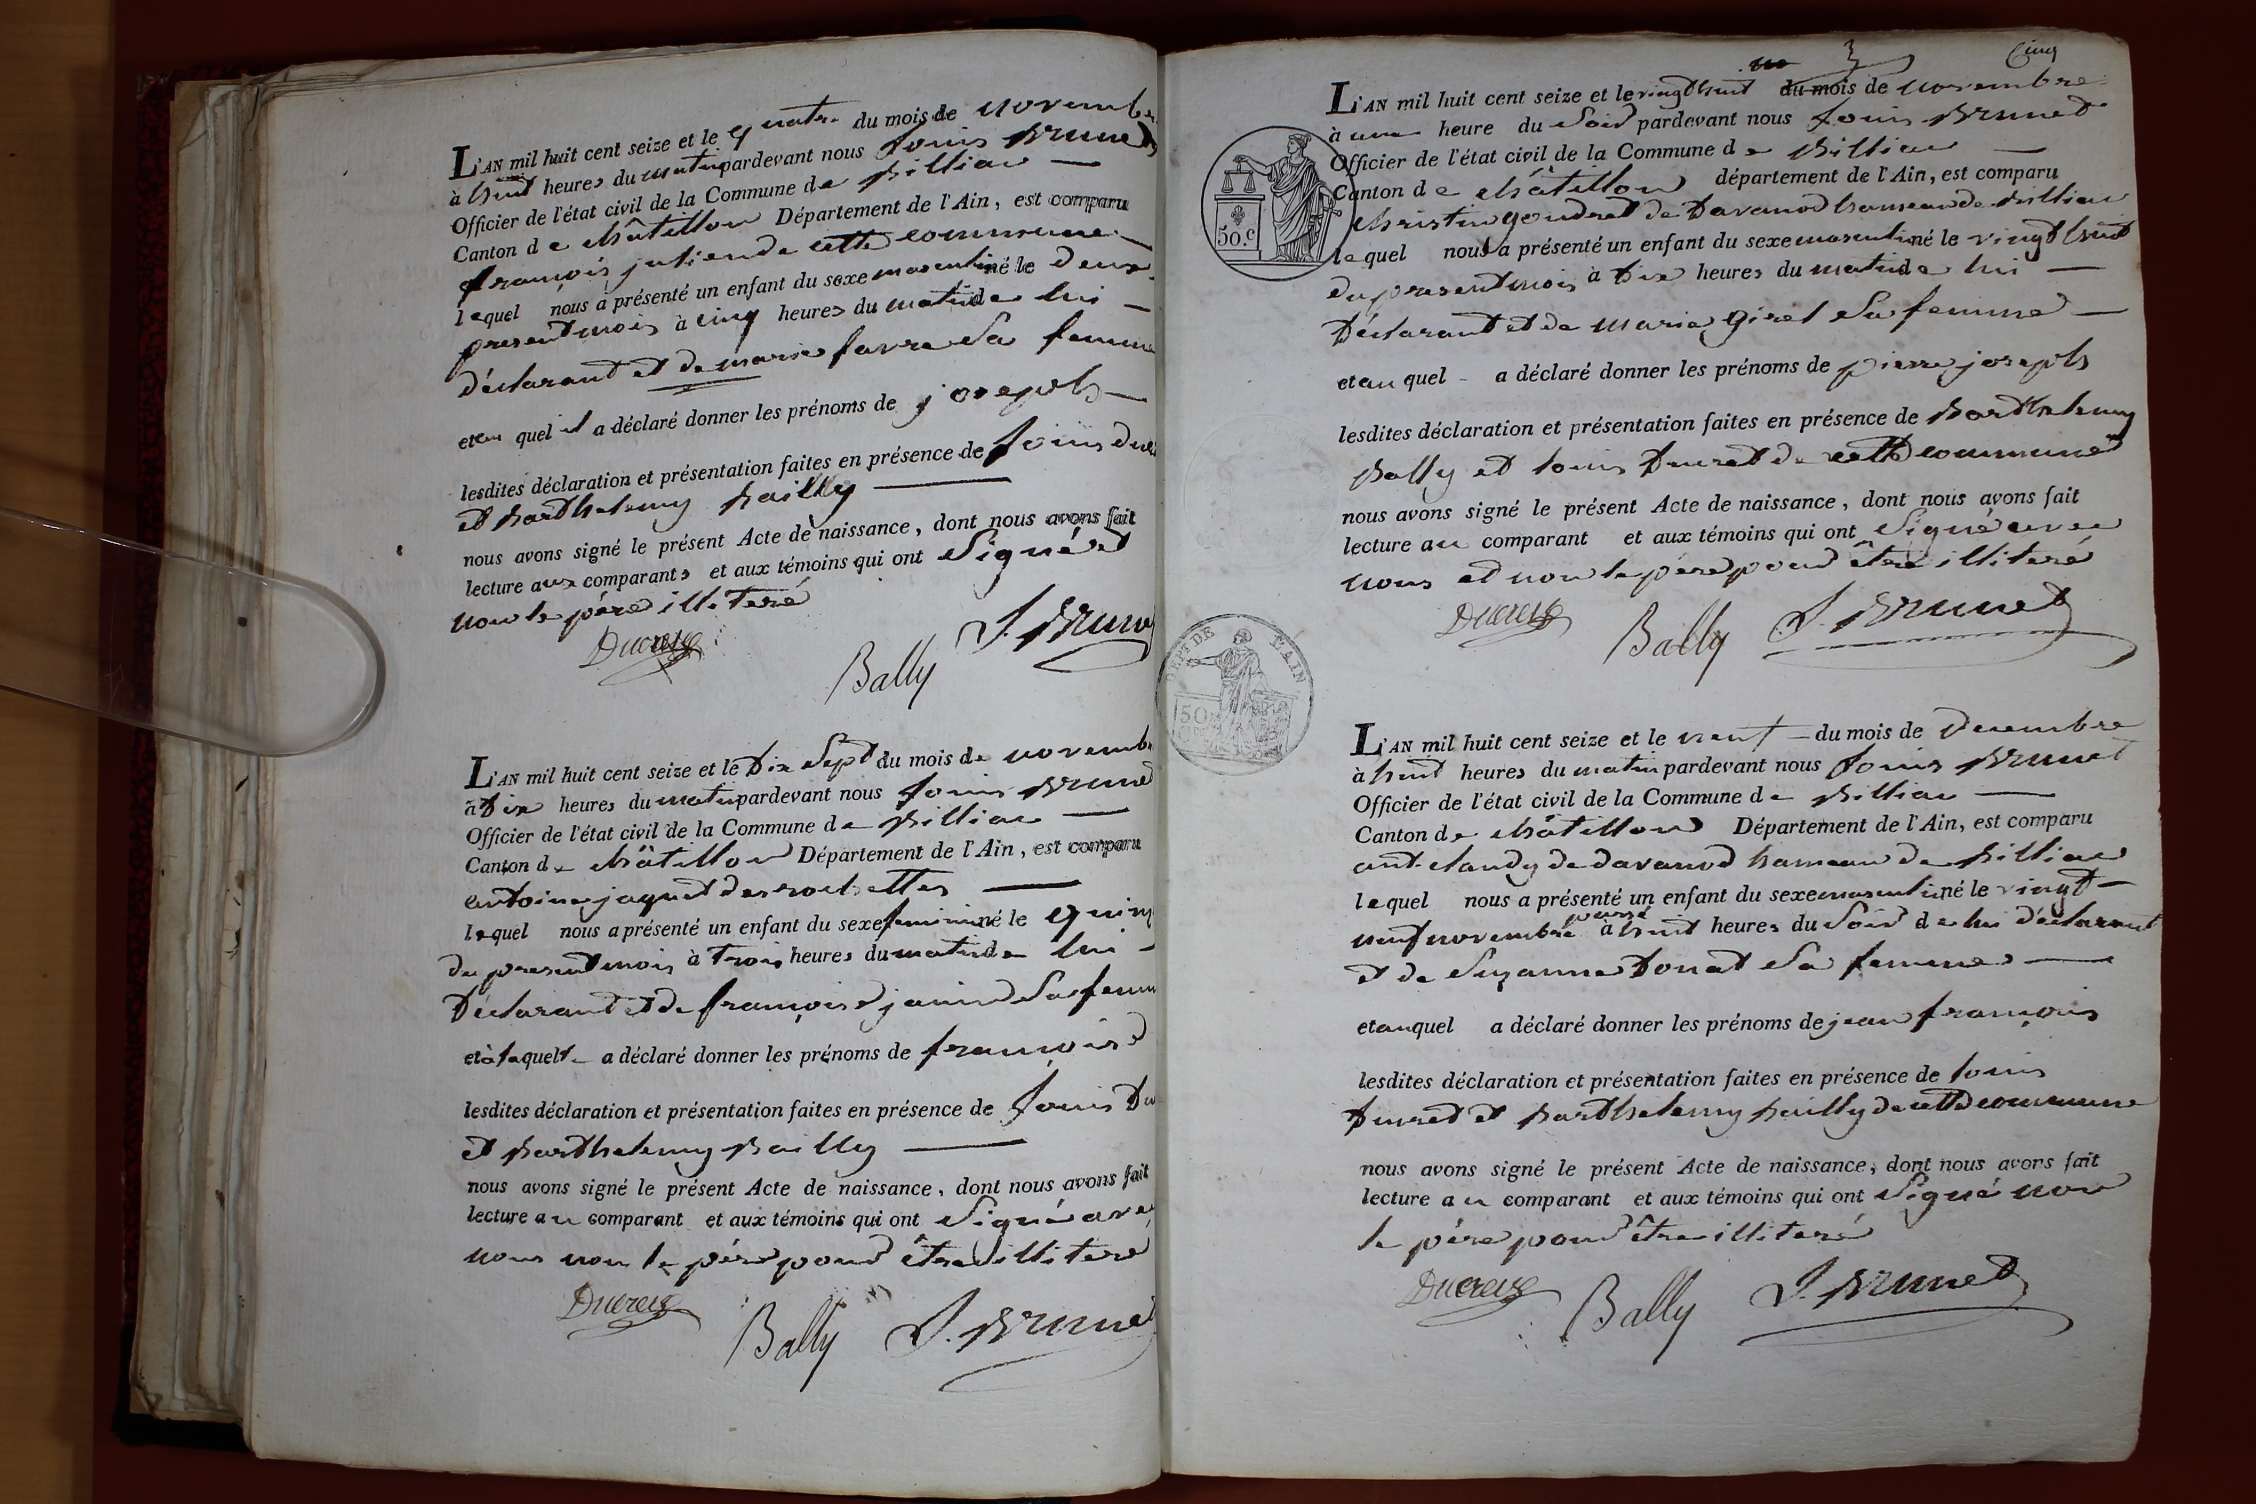 L'AN mil huit cent seize et le quatre du mois de novembre
à huit heures du matin pardevant nous Louis Brunet
Officier de l'état civil de la Commune de Billiac
Canton de châtillon Département de l'Ain, est comparu
françois de cette commune
lequel nous a présenté un enfant du sexe masculin né le deux
present mois à cinq heures du matin de lui
déclarant et de marie favre Sa femme
et au quel il a déclaré donner les prénoms de joseph
lesdites déclaration et présentation faites en présence de Louis
et Barthelemy Bailly
nous avons signé le présent Acte de naissance, dont nous avons fait
lecture aux comparants et aux témoins qui ont Signé et
non le père illiteré
Bally L. Brunet
L'AN mil huit cent seize et le Dix Sept du mois de novembre
à Dix heures du matin pardevant nous Louis Brunet
Officier de l'état civil de la Commune de Billiac
Canton de châtillon Département de l'Ain, est comparu
antoine jaquet des rochettes
lequel nous a présenté un enfant du sexe feminin né le quinze
du present mois à trois heures du matin de lui
Déclarant et de françoise janin Sa femme
et à laquelle a déclaré donner les prénoms de françoise
lesdites déclaration et présentation faites en présence de Louis Du
et Barthelemy Bailly
nous avons signé le présent Acte de naissance, dont nous avons fait
lecture au comparant et aux témoins qui ont Signé avec
nous non le père pour être illiteré
Ducret Bally L. Brunet
Cinq
L'AN mil huit cent seize et le vingt huit du mois de novembre
à une heure du Soir pardevant nous Louis Brunet
Officier de l'état civil de la Commune de Billiac
Canton de châtillon département de l'Ain, est comparu
christin goudret de Davanod hameau de Billiac
lequel nous a présenté un enfant du sexe masculin né le vingt huit
du present mois à Dix heures du matin de lui
Déclarant et de marie girel Sa femme
et au quel a déclaré donner les prénoms de pierre joseph
lesdites déclaration et présentation faites en présence de Barthelemy
Bally et Louis Ducret de cette commune
nous avons signé le présent Acte de naissance, dont nous avons fait
lecture au comparant et aux témoins qui ont Signé avec
nous et non le père pour être illiteré
Ducret Bally L. Brunet
50.c
DEPT DE L'AIN
50
L'AN mil huit cent seize et le neuf du mois de Decembre
à huit heures du matin pardevant nous Louis Brunet
Officier de l'état civil de la Commune de Billiac
Canton de châtillon Département de l'Ain, est comparu
de davanod hameau de Billiac
lequel nous a présenté un enfant du sexe masculin né le vingt
neuf novembre passé à huit heures du Soir de lui déclarant
et de Suzanne Donat Sa femme
et auquel a déclaré donner les prénoms de jean françois
lesdites déclaration et présentation faites en présence de Louis
Ducret et Barthelemy Bailly de cette commune
nous avons signé le présent Acte de naissance, dont nous avons fait
lecture au comparant et aux témoins qui ont Signé non
le père pour être illiteré
Ducret Bally L. Brunet